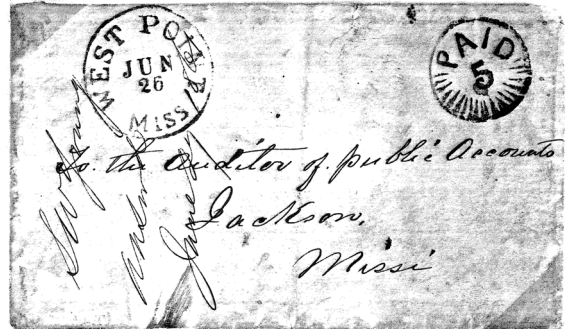 WEST POINT
JUN
26
MISS
PAID
5
To the Auditor of public Accounts
Jackson,
Missi